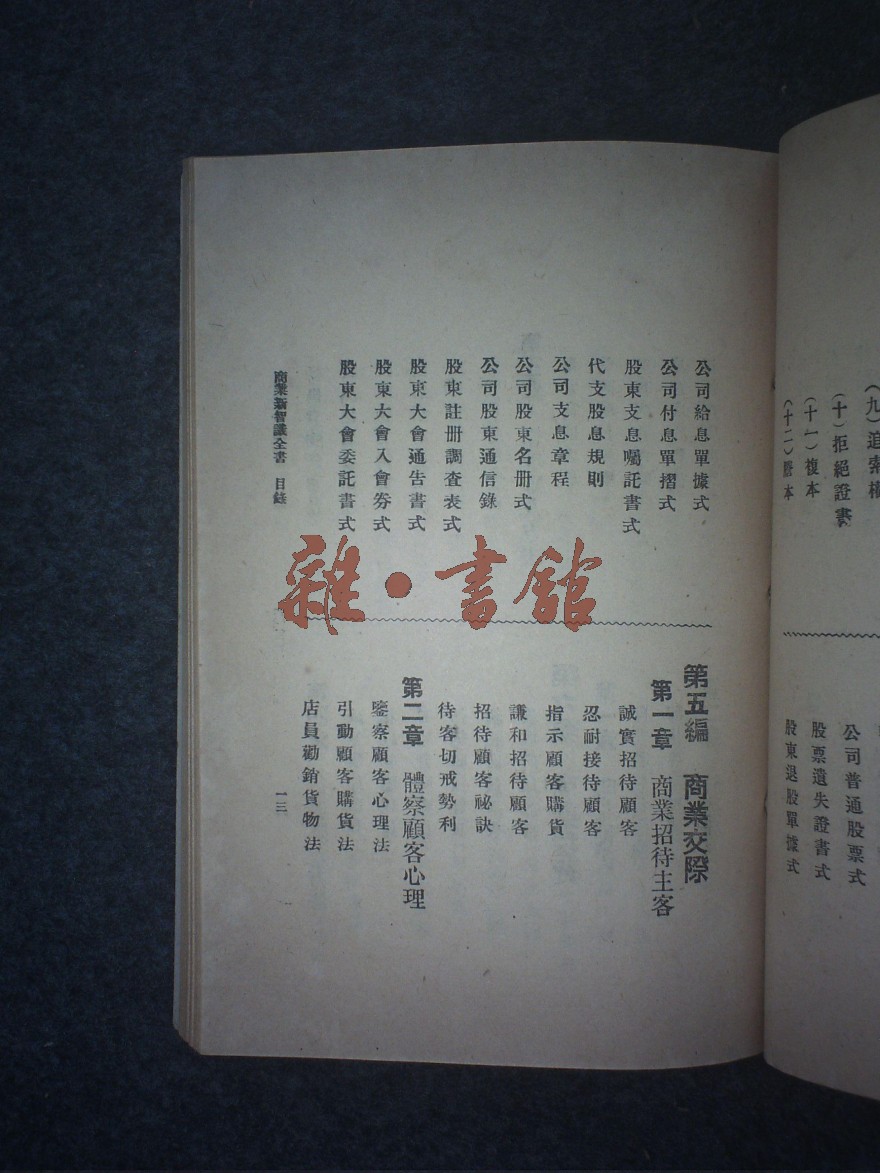 (九)追索
(十)拒絕證書
(十一)複本
(十二)謄本
公司普通股票式
股票遺失證書式
股東退股單據式
公司給息單據式
公司付息單摺式
股東支息囑託書式
代支股息規則
公司支息章程
公司股東名册式
公司股東通信錄
股東註册調查表式
股東大會通告書式
股東大會入會券式
股東大會委託書式
第五編 商業交際
第一章 商業招待主客
誠實招待顧客
忍耐接待顧客
指示顧客購貨
謙和招待顧客
招待顧客祕訣
待客切戒勢利
第二章 體察顧客心理
鑒察顧客心理法
引動顧客購貨法
店員勸銷貨物法
商業新智識全書 目錄
一三
雜·書館